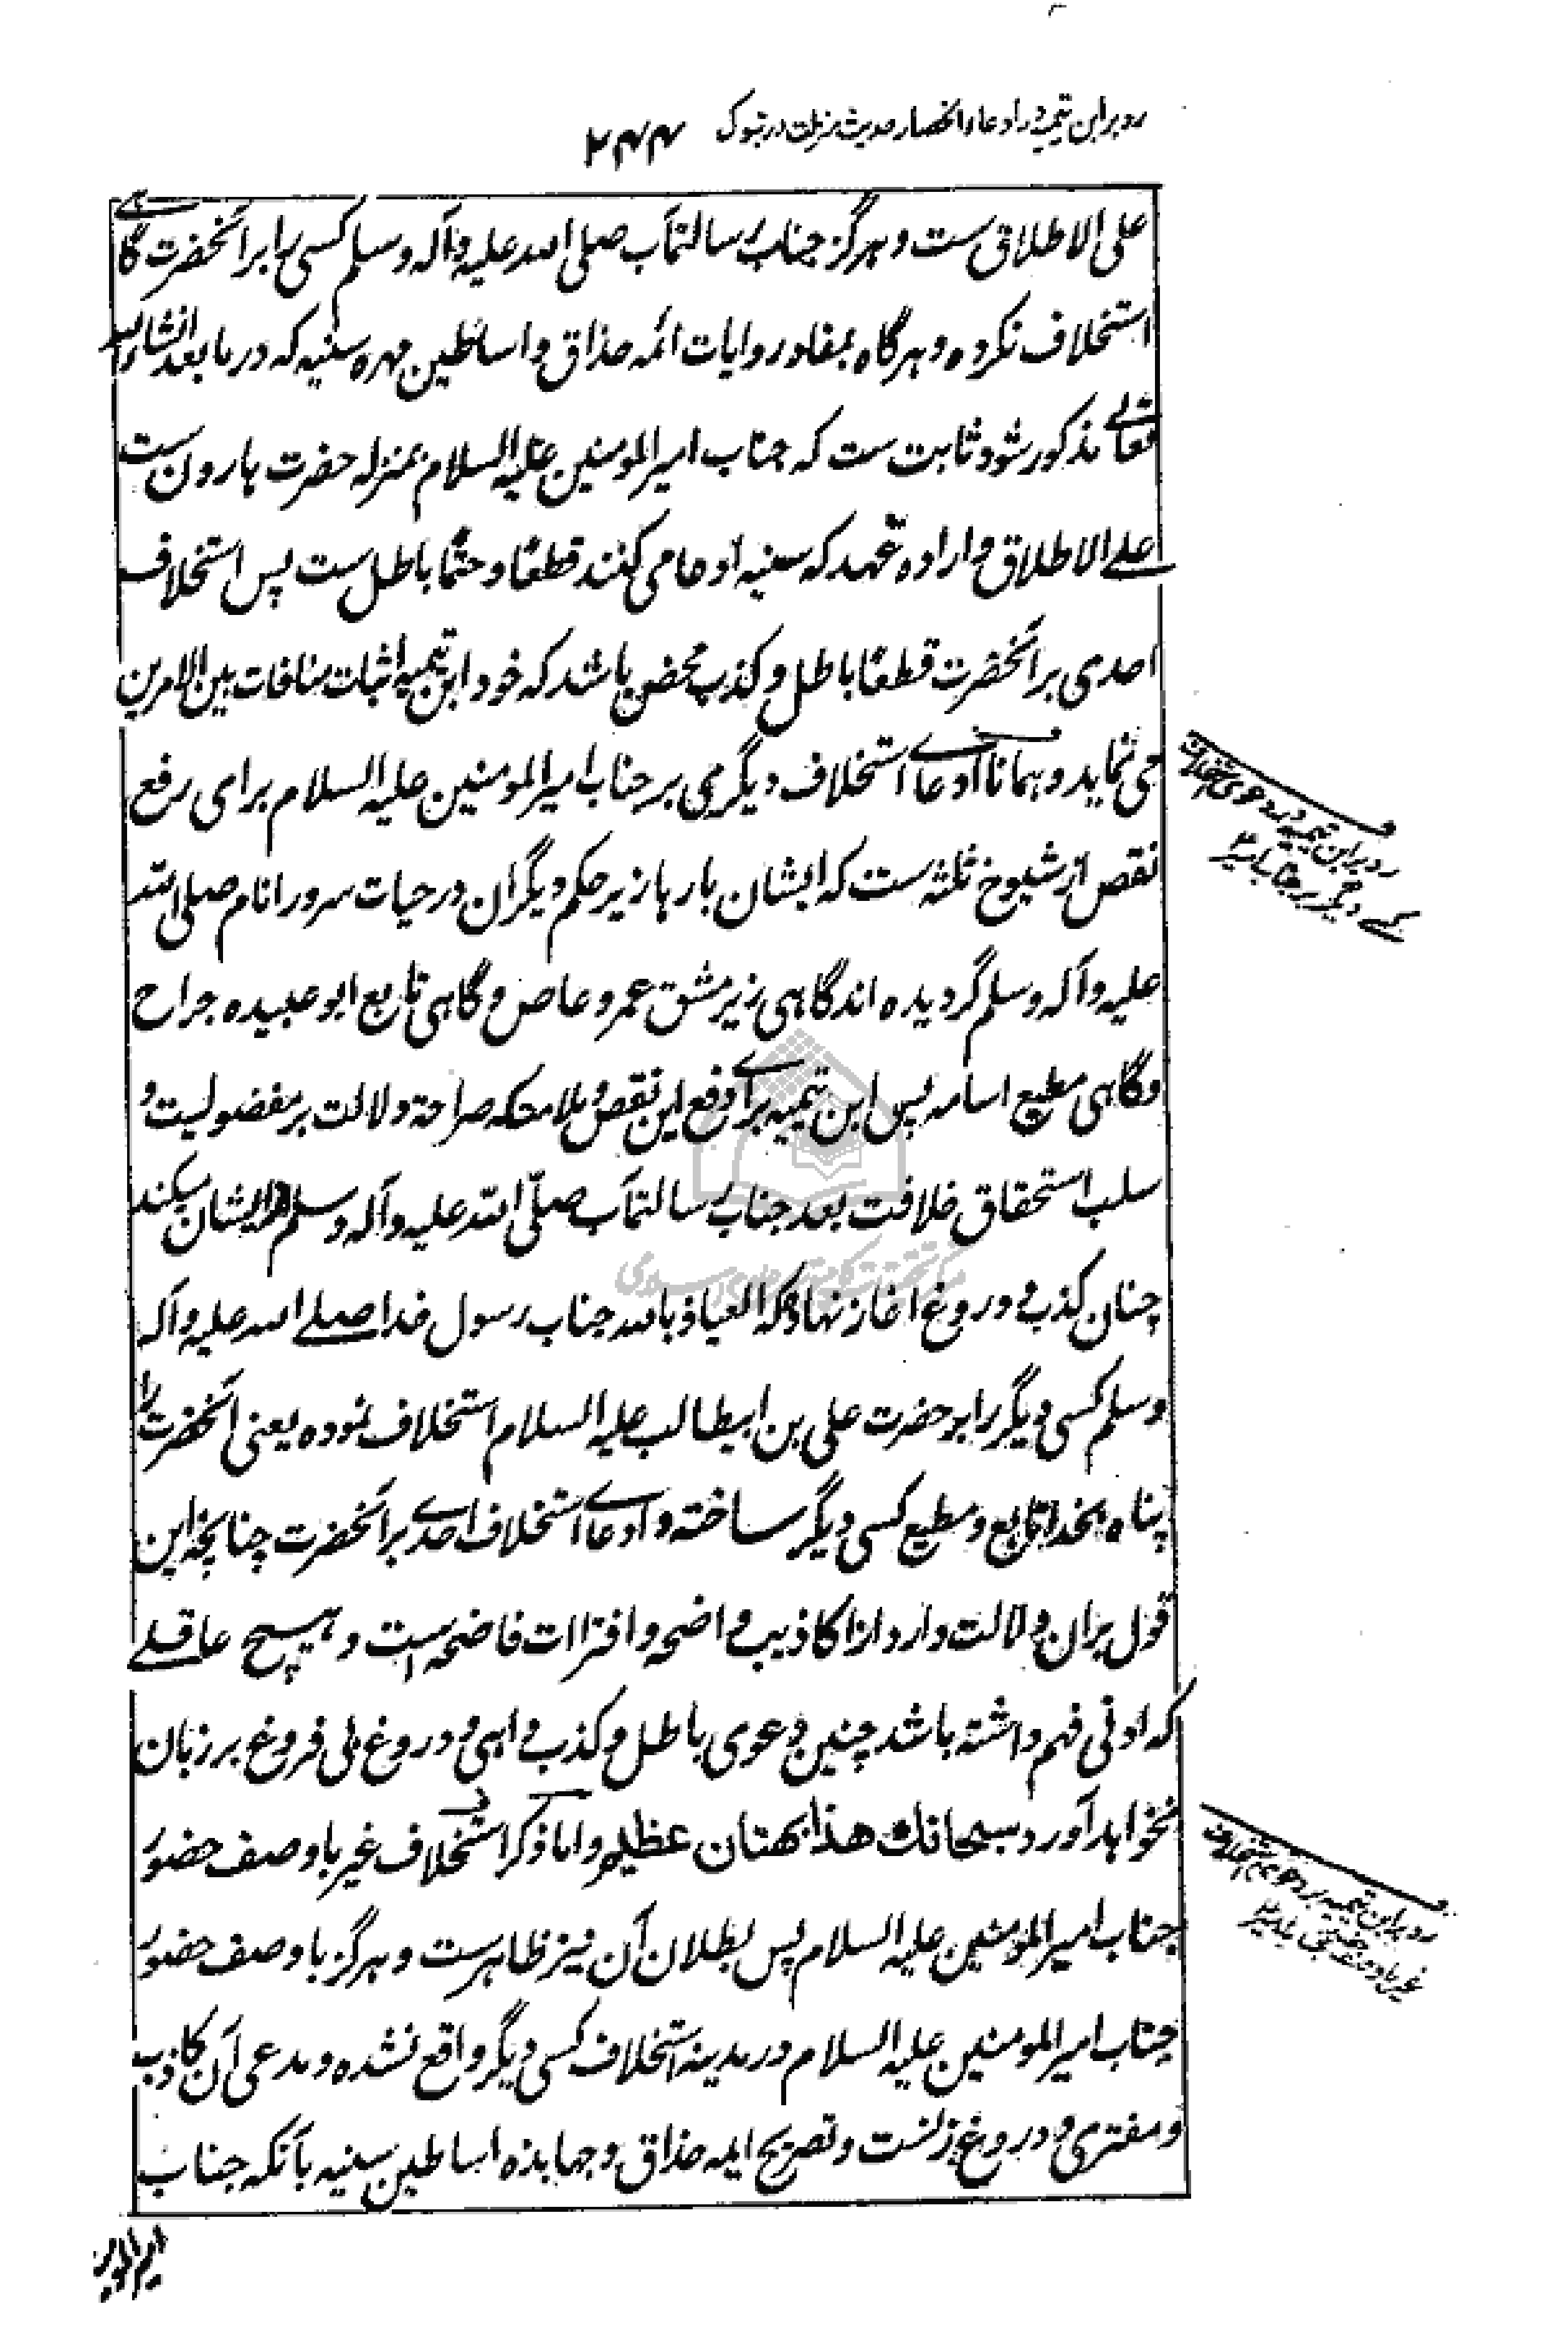 رد بر ابن تیمیه در ادعاء انحصار حدیث منزلت در تبوک ۲۴۴
علی الاطلاق ست و هرگز جناب رسالتمآب صلی الله علیه و آله و سلم کسی را بر آنحضرت گاهے
استخلاف نکرده و هرگاه بمفاد روایات ائمه حذاق و اساطین مهره سنیه که در ما بعد انشاء الله
تعالے مذکور شود ثابت ست که جناب امیر المومنین علیه السلام بمنزله حضرت هارون ست
علے الاطلاق و اراده عهد که سنیه ادعا می کنند قطعًا و حتمًا باطل ست پس استخلاف
احدی بر آنحضرت قطعًا باطل و کذب محض باشد که خود ابن تیمیه اثبات منافات بین الامرین
می نماید و همانا ادعاے استخلاف دیگری بر جناب امیر المومنین علیه السلام برای رفع
نقص از شیوخ ثلثه ست که ایشان بارها زیر حکم دیگران در حیات سرور انام صلی الله
علیه و آله و سلم گردیده اند گاهی زیر مشق عمرو عاص و گاهی تابع ابو عبیده جراح
و گاهی مطیع اسامه پس ابن تیمیه براے دفع این نقص و ملامت که صراحة دلالت بر مفضولیت و
سلب استحقاق خلافت بعد جناب رسالتمآب صلّی الله علیه و آله و سلم از ایشان میکند
چنان کذب و دروغ آغاز نهاد که العیاذ بالله جناب رسول خدا صلے الله علیه و آله
و سلم کسی دیگر را بر حضرت علی بن ابیطالب علیه السلام استخلاف نموده یعنی آنحضرت را
پناه بخدا تابع و مطیع کسی دیگر ساخته و ادعاے استخلاف احدے بر آنحضرت چنانچه این
قول بر آن دلالت دارد از اکاذیب واضحه و افتراات فاضحه است و هیچ عاقلے
که ادنی فهم داشته باشد چنین دعوی باطل و کذب واهی و دروغ بی فروغ بر زبان
نخواهد آورد سبحانك هذا بهتان عظیم و اما ذکر استخلاف غیر با وصف حضور
جناب امیر المومنین علیه السلام پس بطلان آن نیز ظاهرست و هرگز با وصف حضور
جناب امیر المومنین علیه السلام در مدینه استخلاف کسی دیگر واقع نشده و مدعی آن کاذب
و مفتری و دروغ زنست و تصریح ایمه حذاق و جهابذه اساطین سنیه بآنکه جناب
رد بر ابن تیمیه در دعوی استخلاف
کسے دیگر بر جناب امیر ۴
رد بر ابن تیمیه در دعوے استخلاف
امیر المومنین